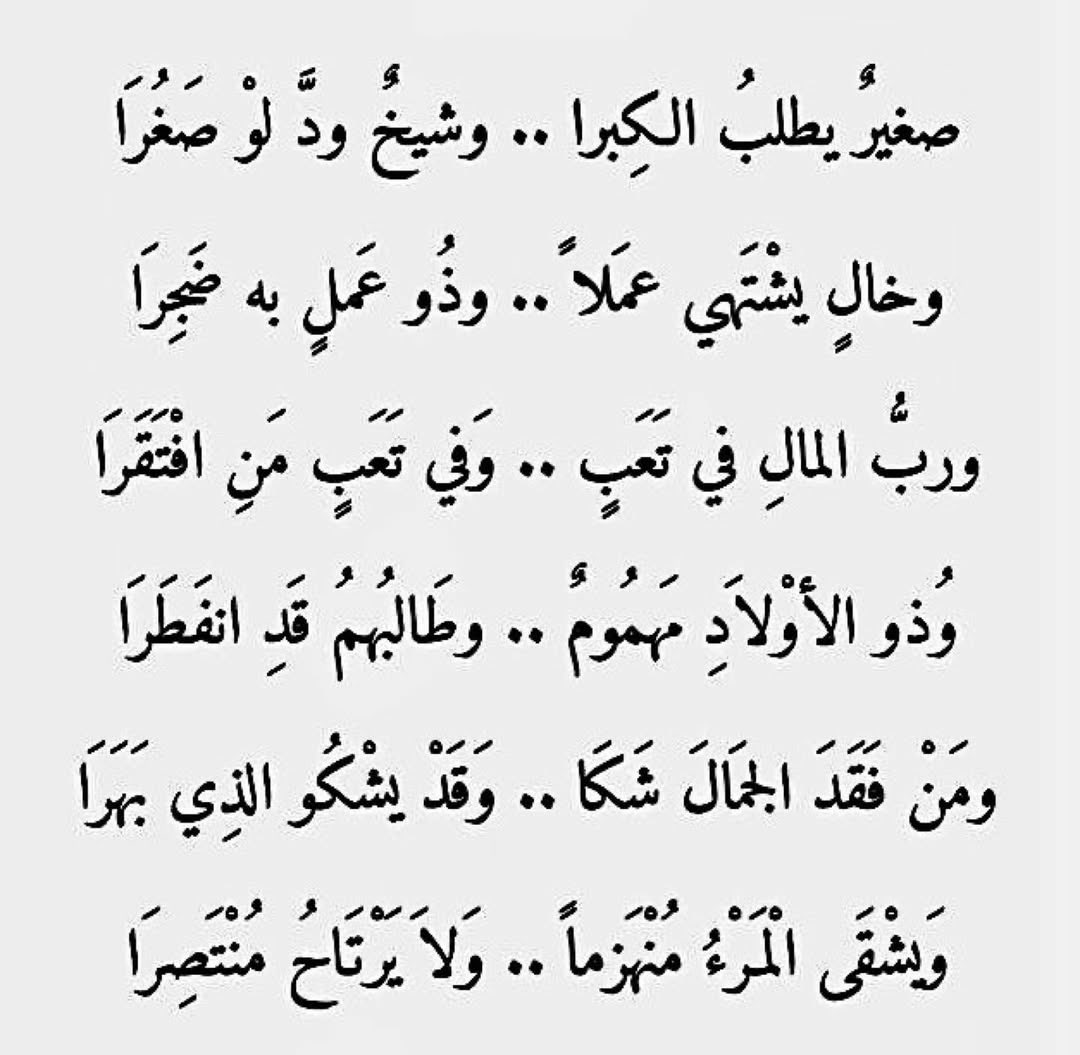 صغيرٌ يطلبُ الكِبرا .. وشيخٌ ودَّ لوْ صَغُرَا
وخالٍ يشْتَهي عمَلاً .. وذُو عَملٍ به ضَجِرَا
وربُّ المالِ في تَعَبٍ .. وَفي تَعَبٍ مَنِ افْتَقَرَا
وُذو الأوْلاَدِ مَهمُومٌ .. وطَالبُهمُ قَدِ انفَطَرَا
ومَنْ فَقَدَ الجمَالَ شَكَا .. وَقَدْ يشْكُو الذِي بَهَرَا
وَيشْقَى الْمَرْءُ مُنْهَزماً .. وَلاَ يَرْتَاحُ مُنْتَصِرَا